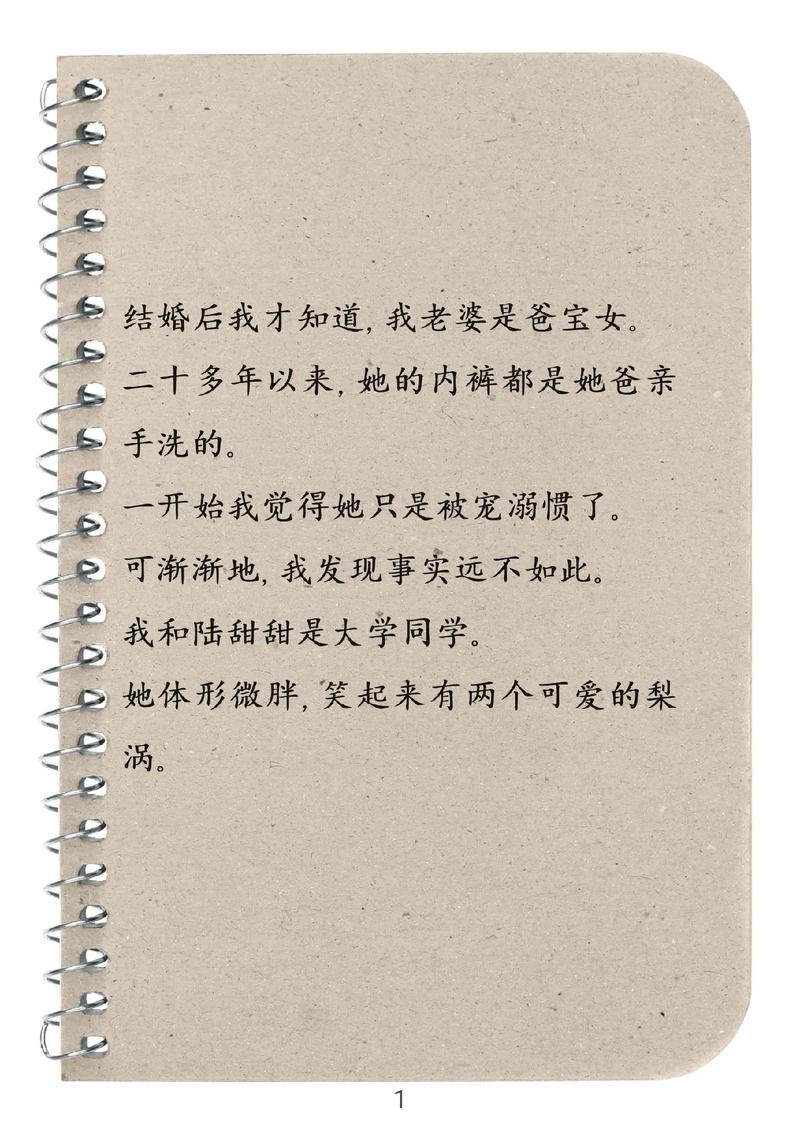 结婚后我才知道,我老婆是爸宝女。
二十多年以来,她的内裤都是她爸亲
手洗的。
一开始我觉得她只是被宠溺惯了。
可渐渐地,我发现事实远不如此。
我和陆甜甜是大学同学。
她体形微胖,笑起来有两个可爱的梨
涡。
1